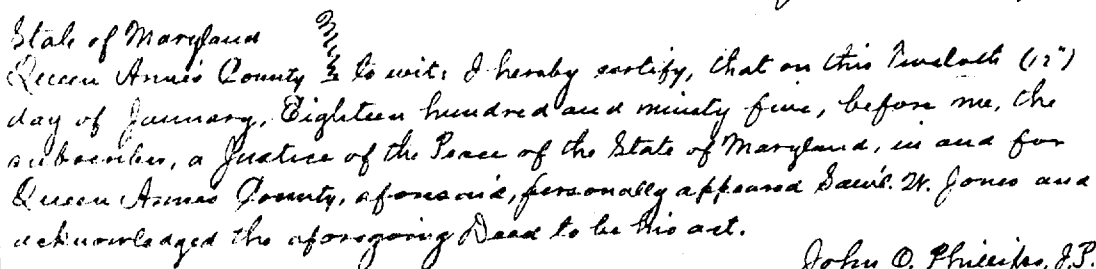 State of Maryland
Queen Anne's County to wit: I hereby certify, that on this Twelvth (12")
day of January, Eighteen hundred and ninety five, before me, the
subscriber, a Justice of the Peace of the State of Maryland, in and for
Queen Annes County, aforesaid, personally appeared Saml. W. Jones and
acknowledged the aforegoing Deed to be his act.
John O. Phillips, J.P.